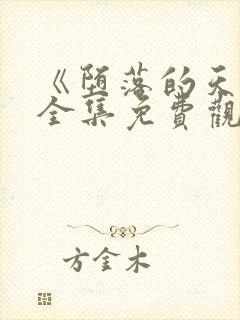 《堕落的天
全集免費觀
方金木